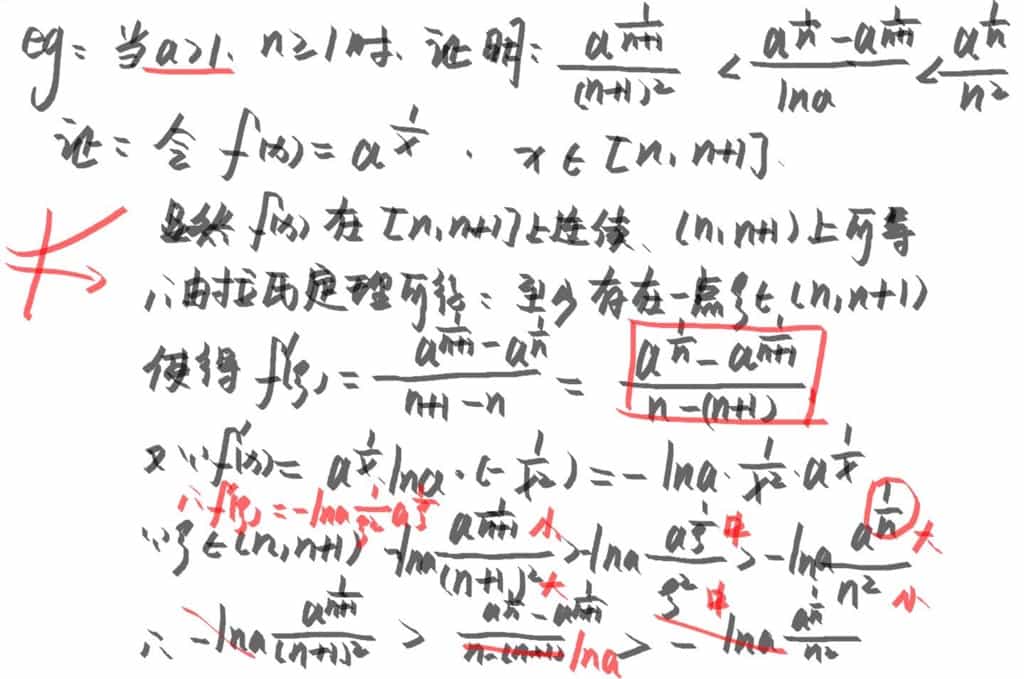 eg: 当a>1, n≥1时, 证明: a^{1/(n+1)}/(n+1)² < (a^{1/n} - a^{1/(n+1)})/lna < a^{1/n}/n²
证: 令 f(x) = a^{1/x}, x∈[n, n+1].
显然 f(x) 在 [n, n+1] 上连续、(n, n+1) 上可导
∴由拉氏定理可得: 至少存在一点ξ∈(n, n+1)
使得 f'(ξ) = (a^{1/(n+1)} - a^{1/n})/(n+1-n) = (a^{1/n} - a^{1/(n+1)})/(n-(n+1))
又∵f'(x) = a^{1/x} lna·(-1/x²) = -lna·1/x²·a^{1/x}
∴f'(ξ) = -lna 1/ξ² a^{1/ξ}
∵ξ∈(n, n+1) -lna a^{1/(n+1)}/(n+1)² 小 大 > -lna a^{1/ξ}/ξ² 中 中 > -lna a^{1/n}/n² 大 小
∴ -lna a^{1/(n+1)}/(n+1)² > (a^{1/n} - a^{1/(n+1)})/(n-(n+1)) lna > -lna a^{1/n}/n²